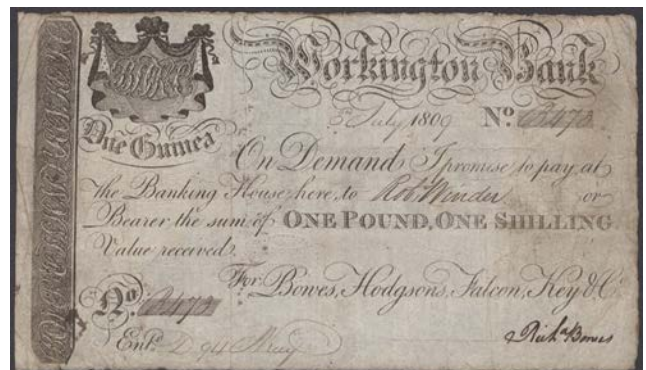 Workington Bank
5 July 1809 No
One Guinea
On Demand I promise to pay at
the Banking House here, to Robt Winder or
Bearer the sum of ONE POUND, ONE SHILLING
Value received.
For Bowes, Hodgsons, Falcon, Key & Co
No
Entd
Richd Bowes